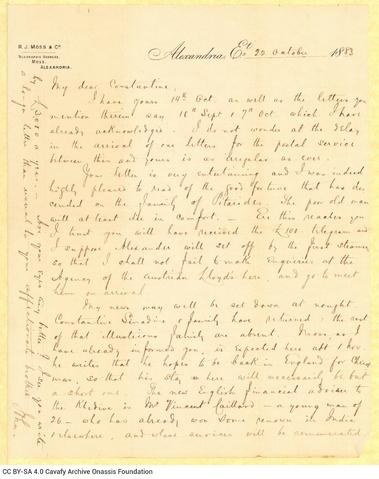 R. J. MOSS & Co.
TELEGRAPHIC ADDRESS,
MOSS,
ALEXANDRIA.
Alexandria, Et. 20 October 1883
My dear Constantine,
I have yours 14th Oct. as well as the letters you
mention therein say 18th Sept & 7th Oct which I have
already acknowledged. I do not wonder at the delay
in the arrival of our letters for the postal service
between this and yours is as irregular as ever.
Your letter is very entertaining and I was indeed
highly pleased to read of the good fortune that has des-
cended on the family of. The poor old man
will at least die in comfort. — Ere this reaches you
I trust you will have received the £100. telegram and
I suppose Alexander will set off by the first steamer
so that I shall not fail to make enquiries at the
Agency of the Austrian Lloyd's here, and go to meet
him on arrival.
My news may well be set down at nought.
Constantine & family have returned; the rest
of that illustrious family are absent. Moss, as I
have already informed you, is expected here abt 1 Nov.
he writes that he hopes to be back in England for Christ
mas, so that his stay here will necessarily be but
a short one. The new English financial adviser to
the Khedive is Mr Vincent Caillard — a young man of
26 — who has already won some renown in India
& elsewhere, and whose services will be remunerated
by £2000 a year. — Are your eyes any better? I see you write
a longer letter than usual to your affectionate brother